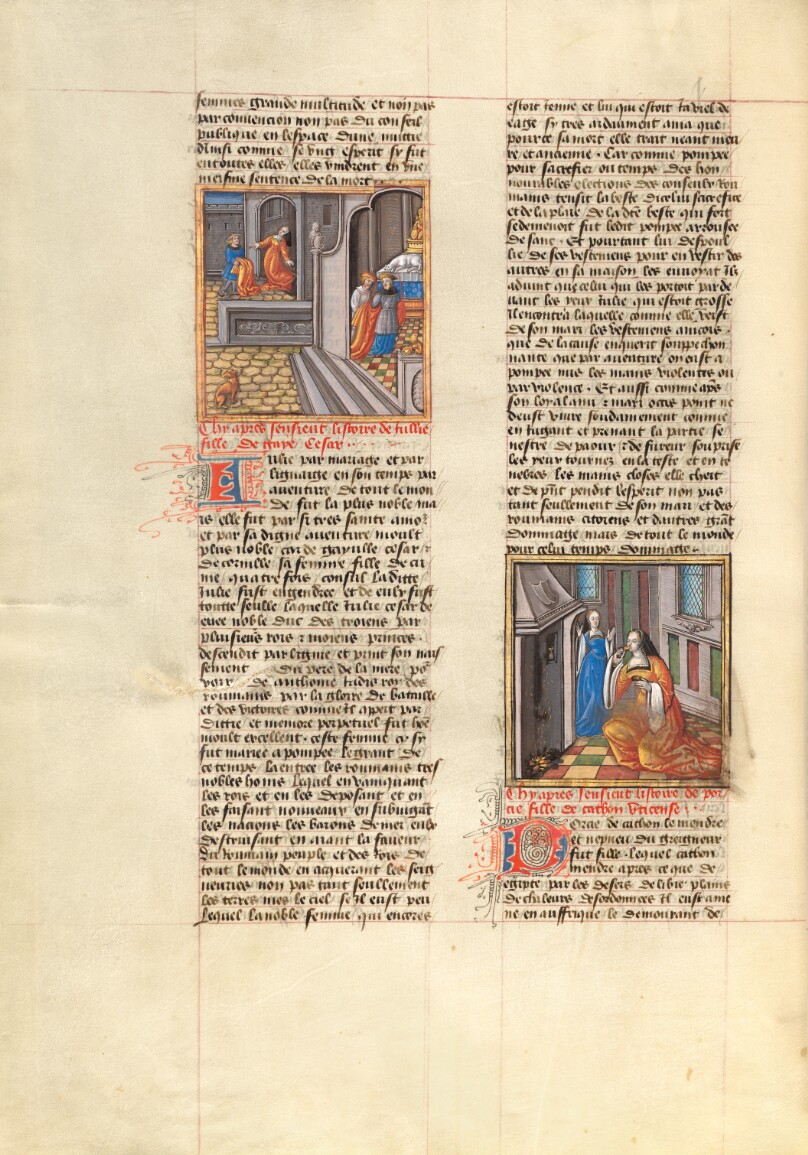 femmes grande multitude et non pas
par convencion non pas du conseil
publique en lespace dune nuitie
Ainsi comme se ung esperit sy fut
entoutes elles elles vindrent en une
mesme sentence de la mort
Chy apres sensieut listoire de Iullie
fille de gaye Cesar
Iulie par mariage et par
lignaige en son temps par
aventure de tout le mon
de fut la plus noble ma
is elle fut par si tres sainte amor
et par sa digne aventure moult
plus noble car de gayulle cesar
de cornille sa femme fille de ci
ne quatre fois consul laditte
Iulie fust engendree et de eulx fust
toutte seulle laquelle Iulie cesar de
enee noble duc des troiens par
pluisieurs rois et moiens princes
descendit par lignie et print son nais
sement Du pere de la mere po
voir de anthoine roy des
roumains par la gloire de bataille
et des victoires comme il apert par
dittie et memore perpetuel fut hom
moult excellent ceste femme cy sy
fut mariee a pompee le grant de
ce temps la entre les roumains tres
nobles homs lequel en vainquant
les rois et en les deposant et en
les faisant nouveaux en subuigant
les nacions les barons de mer eulx
destruisant en aiant la faveur
du roumain peuple et des rois de
tout le monde en acquerant les seig
neuries non pas tant seullement
les terres mes le ciel se il eust peu
Lequel la noble femme qui encores
estoit jenne et lui qui estoit ia viel de
eage sy tres ardaument ama que
pour ce sa mort elle trait neant meu
re et ancienne Car comme pompee
pour sacrefier ou temps des hon
nourables elections des conseulx rou
mains tensit la beste dicelui sacrefice
et de la plaie de la dte beste qui fort
se demenoit fut ledit pompee arrousee
de sanc Et pourtant lui despoul
lie de ses vestemens pour en vestir des
autres en sa maison les envoyat Il
advint que celui qui les portoit par de
vant les yeux Iulie qui estoit grosse
Il encontra laquelle comme elle veist
de son mari les vestemens aincois
que de la cause enquerir souppechon
nante que par aventure on eust a
pompee mis les mains violentes ou
par violence Et aussi comme aps
son loyal ami et mari occis point ne
deust vivre soudainement comme
en fugant et prenant la partie se
nestre de paour et de fureur sourprise
les yeux tournez en la teste et en te
nebres les mains closes elle cheit
et de pnt pendit lesperit non pas
tant seullement de son mari et des
roumains citoiens et dautres grant
dommaige mais de tout le monde
pour celui temps dommage
Chy apres sensieut listoire de por
cie fille de cathon Uticense
Porcie de cathon le mendre
et nepueu du greigneur
fut fille lequel cathon
mendre apres ce que de
egipte par les desers de libie plains
de chaleurs desordonnees Il eust ame
ne en auffrique le demourant de